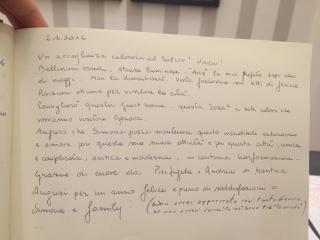 2.1.2016
Un accoglienza calorosa al solito! Unica!
Bellissimi arredi, stanza luminosa "Aria" la mia preferita dopo anni
di viaggi. Non la dimenticherò. Vista fantastica sui tetti di
Posizione ottima per visitare la città.
Consiglierò questa guest house... questa "casa" a tutti coloro che
vorranno visitare Genova.
Auguro che Simona possa mantenere questo entusiasmo
e amore per questa sua nuova attività e per questa città, unica
e complicata, antica e moderna... in continua trasformazione...
Grazie di cuore da Pierfelice e Andrea di Mantova
Auguri per un anno felice e pieno di soddisfazioni a
Simona e family. (Non avrei apprezzato così tanto Genova
se non avessi dormito nel b&b "la